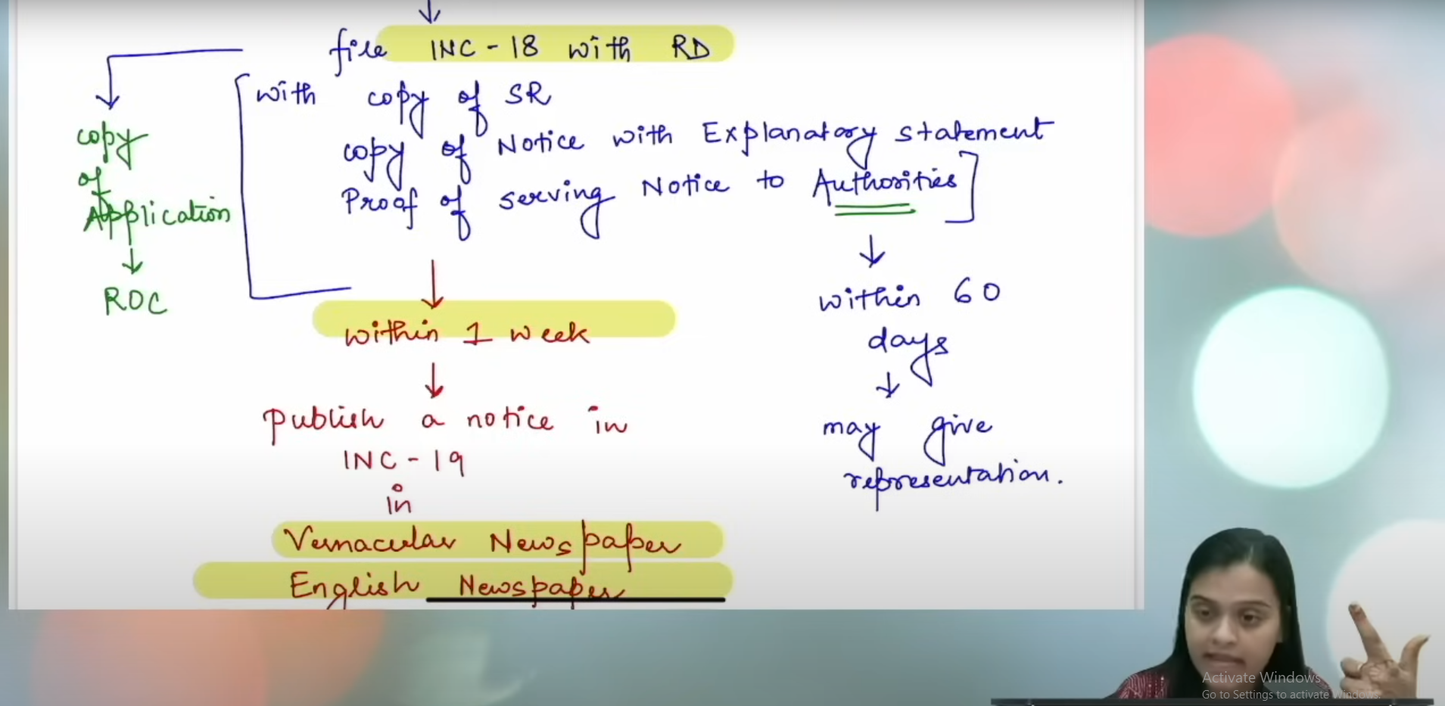 file INC-18 with RD
with copy of SR
copy of Notice with Explanatory statement
Proof of serving Notice to Authorities
copy
of
Application
ROC
within 1 week
Publish a notice in
INC-19
in
Vernacular Newspaper
English Newspaper
within 60
days
may give
representation.
Activate Windows
Go to Settings to activate Windows